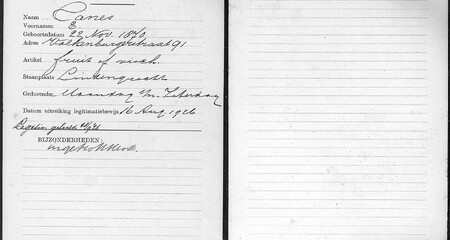 Naam Canes
Voornamen E.
Geboortedatum 22 Nov. 1870
Adres Valkenburgerstraat 91
Artikel fruit of visch.
Staanplaats Lindengracht
Gedurende Maandag t/m Zaterdag
Datum uitreiking legitimatiebewijs 16 Aug. 1926
BIJZONDERHEDEN:
ingetrokken